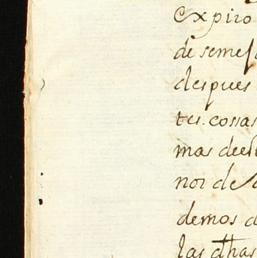 expiro
de seme
despues
tes. cosas
mas de el
nor de
demos
las dhas